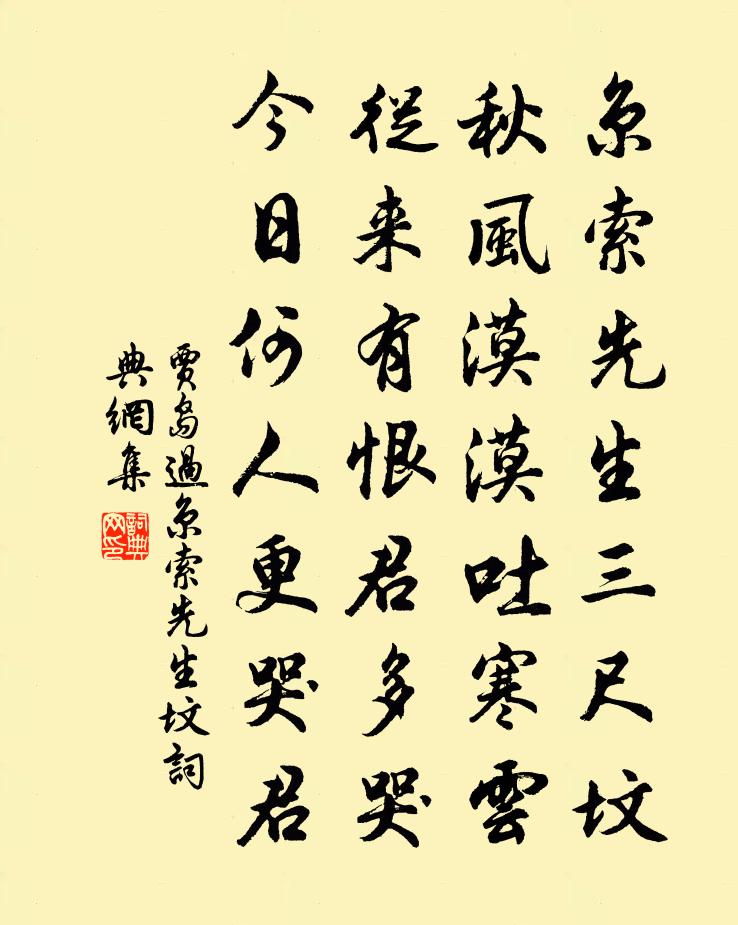 京索先生三尺坟
秋風漠漠吐寒雲
從来有恨君多哭
今日何人更哭君
賈島過京索先生坟詞
典網集
詞典
网印